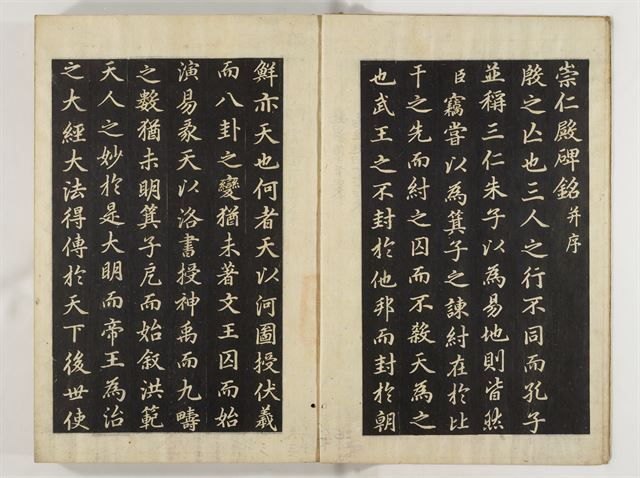 崇仁殿碑銘并序
殷之亡也三人之行不同而孔子
並稱三仁朱子以為易地則皆然
臣竊嘗以為箕子之諫紂在於比
干之先而紂之囚而不殺天為之
也武王之不封於他邦而封於朝
鮮亦天也何者天以河圖授伏羲
而八卦之變猶未著文王囚而始
演易彖天以洛書授神禹而九疇
之數猶未明箕子戹而始叙洪範
天人之妙於是大明而帝王為治
之大經大法得傳於天下後世使